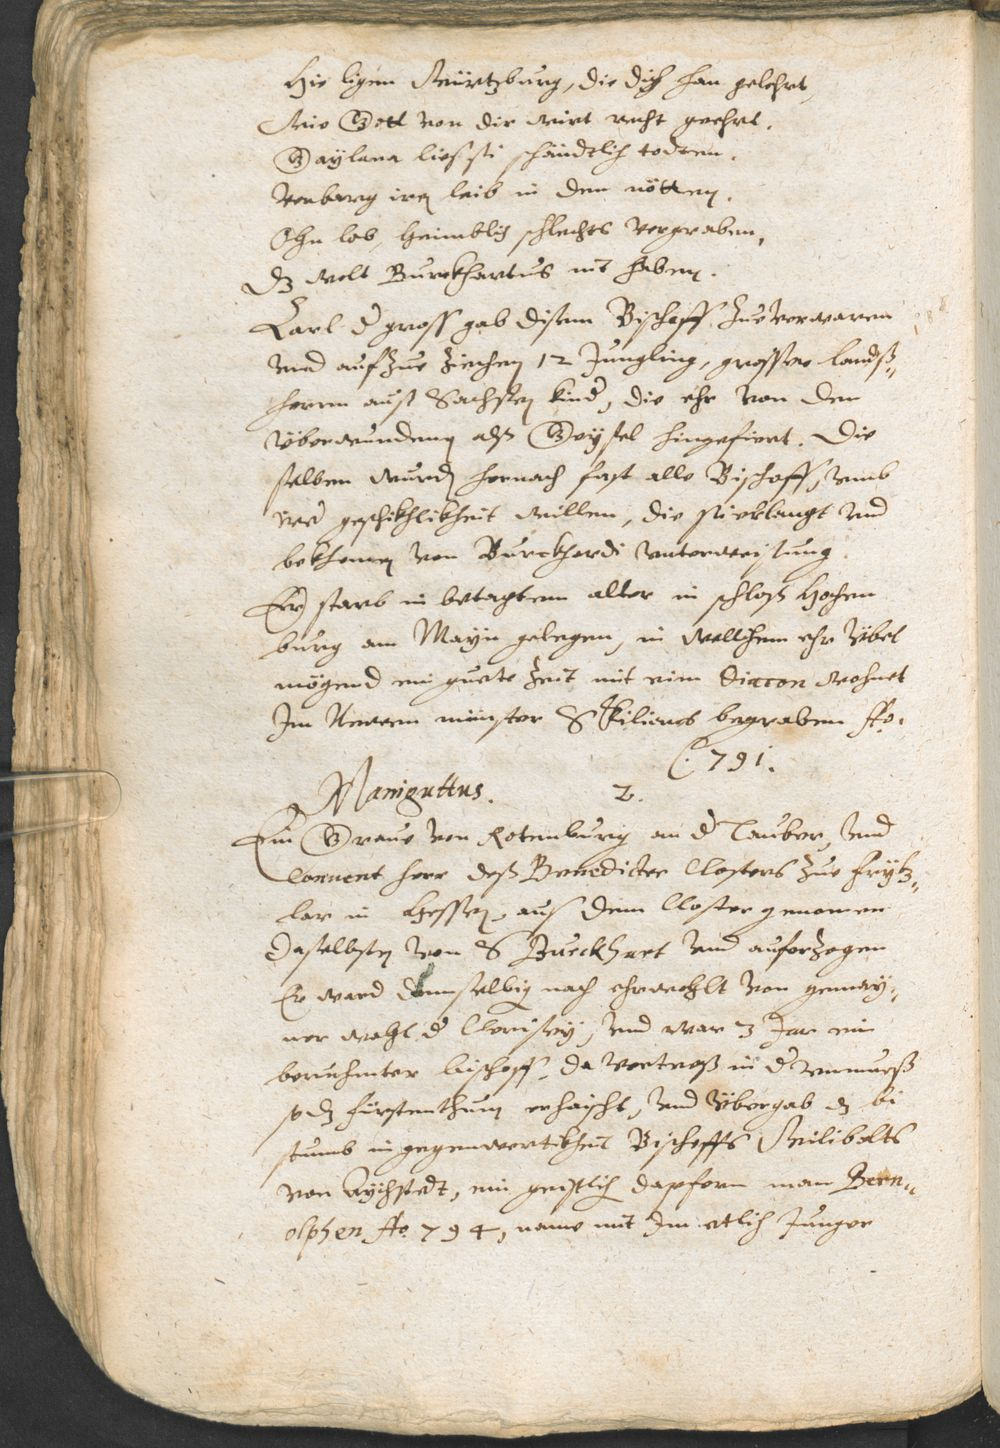 Hie ligen Würtzburg, die dich han gelehrt,
Wie Gott von dir wirt recht geehrt.
Gaylana liess si schändtlich tödten.
Verbarg iren leib in den nötten.
Ohn lob, heimblich schlechts vergraben,
Dz wolt Burckhartus nit haben.
Carl d gross gab disem Bischoff zue verwaren
und aufzue ziechen 12 Jungling, grosser landß„
herrn auß Sachsen kind, die ehr von den
überwundenen alß Geysel hingefiert. Die
selben wurden hernach fast alle Bischoff, umb
irer geschikhlikheit willen, die sie erlangt und
bekhomen von Burckhardi underweisung.
Er starb in betagtem alter in schloß Hochen
burg am Mayn gelegen, in wellichem ehr übel
mögend ein guete Zeit mit eim diacon wohnet
Im Newen münster S Kilians begraben Ao.
791.
Maniguttus. 2.
Ein Grave von Rotenburg an d Tauber, und
Convent herr deß Benedicter Closters zue Fryß„
lar in Hessen, auß dem Closter genomen
daselbsten von S Burckhart und auferzogen
Er ward demselbig nach ehrwehlt von gemay„
ner wahl d Clerisey, und war 3 Jar ein
beruhmter bischoff, da
so dz fürstenthum erhaischt, und übergab dz bi
stumb in gegenwertikheit Bischoffs Wilibolts
von Aychstedt, ein geistlich dapfern man Bern„
olphen Ao. 794, name mit Im etlich Junger